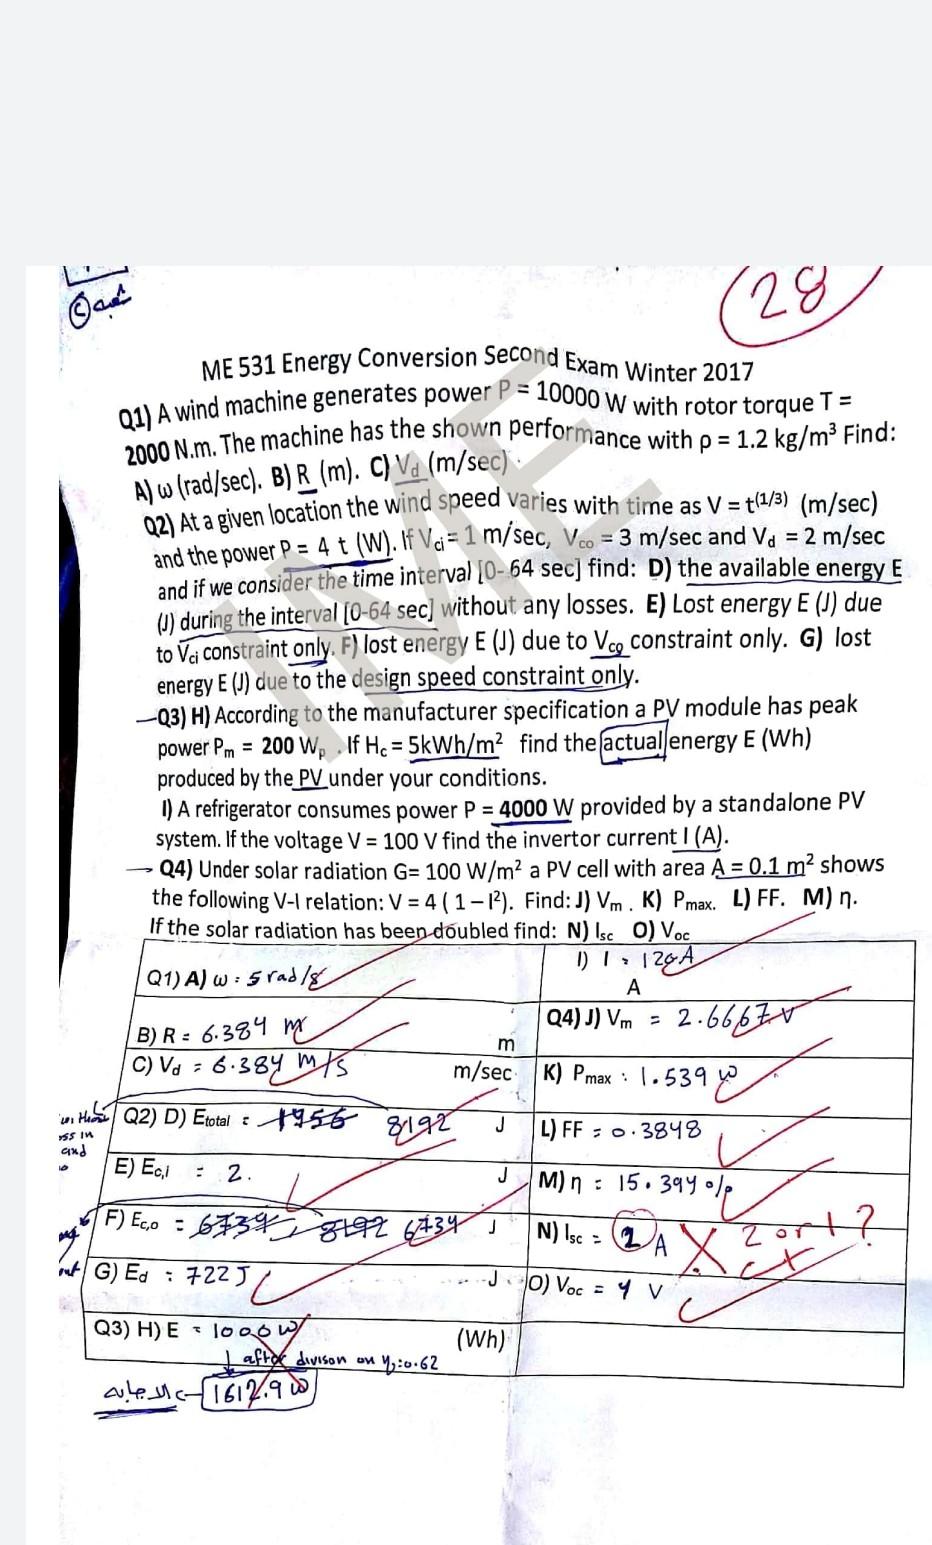 28
شعبة ©
ME 531 Energy Conversion Second Exam Winter 2017
Q1) A wind machine generates power P = 10000 W with rotor torque T =
2000 N.m. The machine has the shown performance with ρ = 1.2 kg/m³ Find:
A) ω (rad/sec). B) R (m). C) Vd (m/sec)
Q2) At a given location the wind speed varies with time as V = t^(1/3) (m/sec)
and the power P = 4 t (W). If Vci = 1 m/sec, Vco = 3 m/sec and Vd = 2 m/sec
and if we consider the time interval [0- 64 sec] find: D) the available energy E
(J) during the interval [0-64 sec] without any losses. E) Lost energy E (J) due
to Vci constraint only. F) lost energy E (J) due to Vco constraint only. G) lost
energy E (J) due to the design speed constraint only.
Q3) H) According to the manufacturer specification a PV module has peak
power Pm = 200 Wp . If Hc = 5kWh/m² find the actual energy E (Wh)
produced by the PV under your conditions.
I) A refrigerator consumes power P = 4000 W provided by a standalone PV
system. If the voltage V = 100 V find the invertor current I (A).
Q4) Under solar radiation G= 100 W/m² a PV cell with area A = 0.1 m² shows
the following V-I relation: V = 4 ( 1 – I²). Find: J) Vm . K) Pmax. L) FF. M) η.
If the solar radiation has been doubled find: N) Isc O) Voc
IME
Q1) A) ω = 5 rad/s
B) R = 6.384 m m
C) Vd = 6.384 m/s m/sec
Q2) D) Etotal = 1956 8192 J
E) Ec,i = 2. J
F) Ec,o = 6734, 8192 6734 J
G) Ed : 722 J J
Q3) H) E = 1000 W (Wh)
after divison on η:0.62
1612.9 W الاجابة
I) I = 120 A
A
Q4) J) Vm = 2.6667 V
K) Pmax : 1.539 W
L) FF = 0.3848
M) η = 15.394 %
N) Isc = 2 A 2 or 1 ?
O) Voc = 4 V